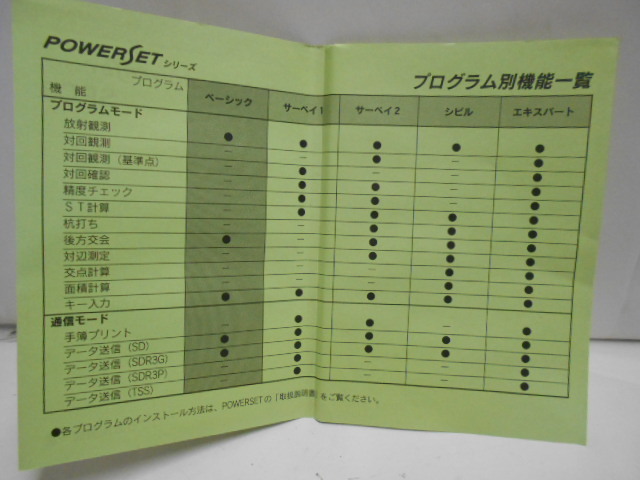 POWERSET シリーズ
プログラム別機能一覧
プログラム
機能
ベーシック
サーベイ1
サーベイ2
シビル
エキスパート
プログラムモード
放射観測
対回観測
対回観測（基準点）
対回確認
精度チェック
ST計算
杭打ち
後方交会
対辺測定
交点計算
面積計算
キー入力
通信モード
手簿プリント
データ送信（SD）
データ送信（SDR3G）
データ送信（SDR3P）
データ送信（TSS）
●各プログラムのインストール方法は、POWERSETの「取扱説明書」をご覧ください。